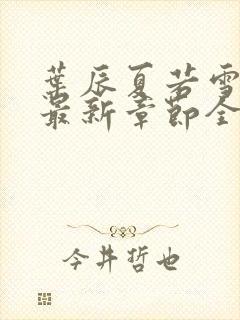 葉辰夏若雪
最新章節全
今井哲也